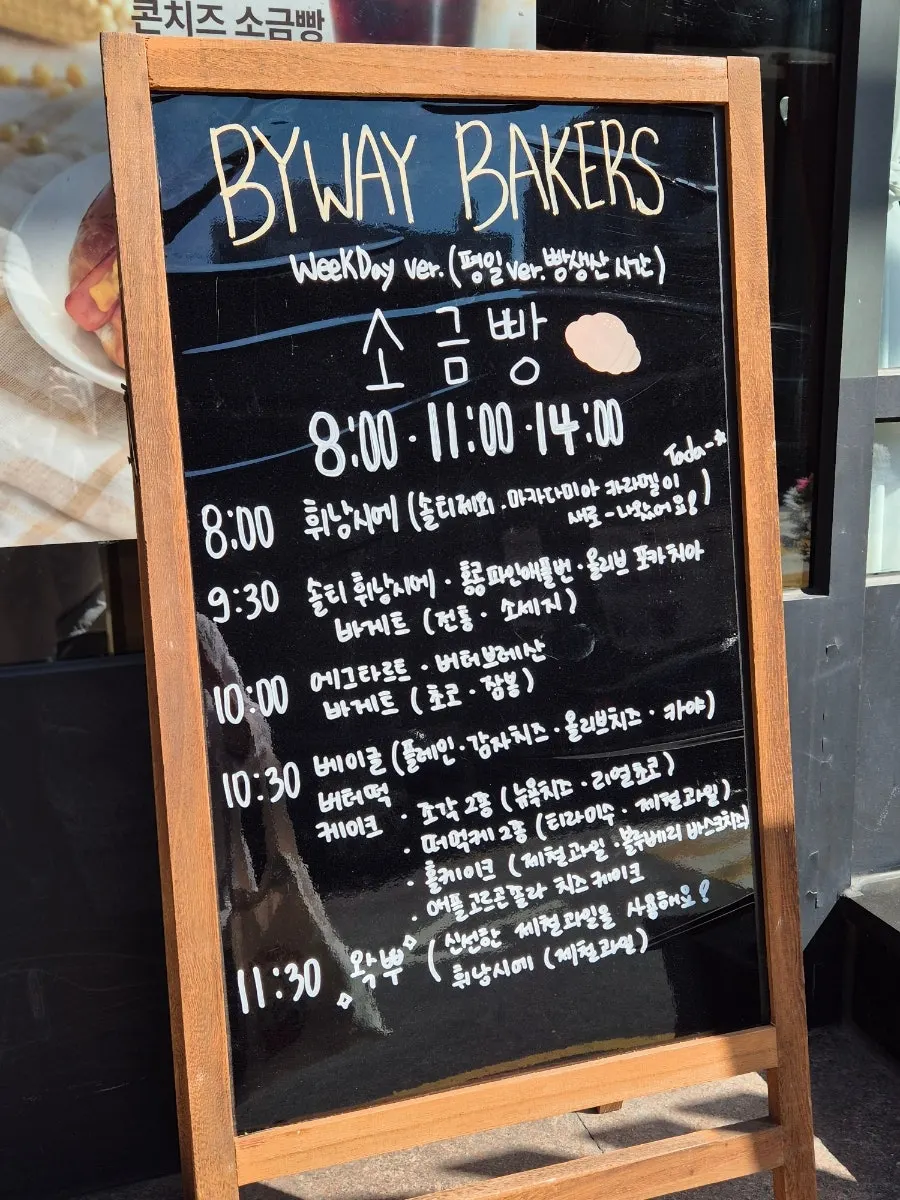 콘치즈 소금빵
BYWAY BAKERS
WeeKDay ver. (평일 ver. 빵생산 시간)
소금빵
8:00 · 11:00 · 14:00
Tada~*
8:00 휘낭시에 (솔티제외 · 마카다미아 카라멜이
새로~나왔어요!)
9:30 솔티 휘낭시에 · 통통 파인애플번 · 올리브 포카치아
바게트 (전통 · 소세지)
10:00 에그타르트 · 버터브레산
바게트 (초코 · 잠봉)
10:30 베이글 (플레인 · 감자치즈 · 올리브치즈 · 카야)
버터떡
케이크 · 조각 2종 (뉴욕치즈 · 리얼초코)
· 떠먹케 2종 (티라미수 · 제철과일)
· 홀케이크 (제철과일 · 블루베리 바스크치즈
· 애플고르곤졸라 치즈케이크
11:30 왁뿌 (신선한 제철과일을 사용해요!
휘낭시에 (제철과일)